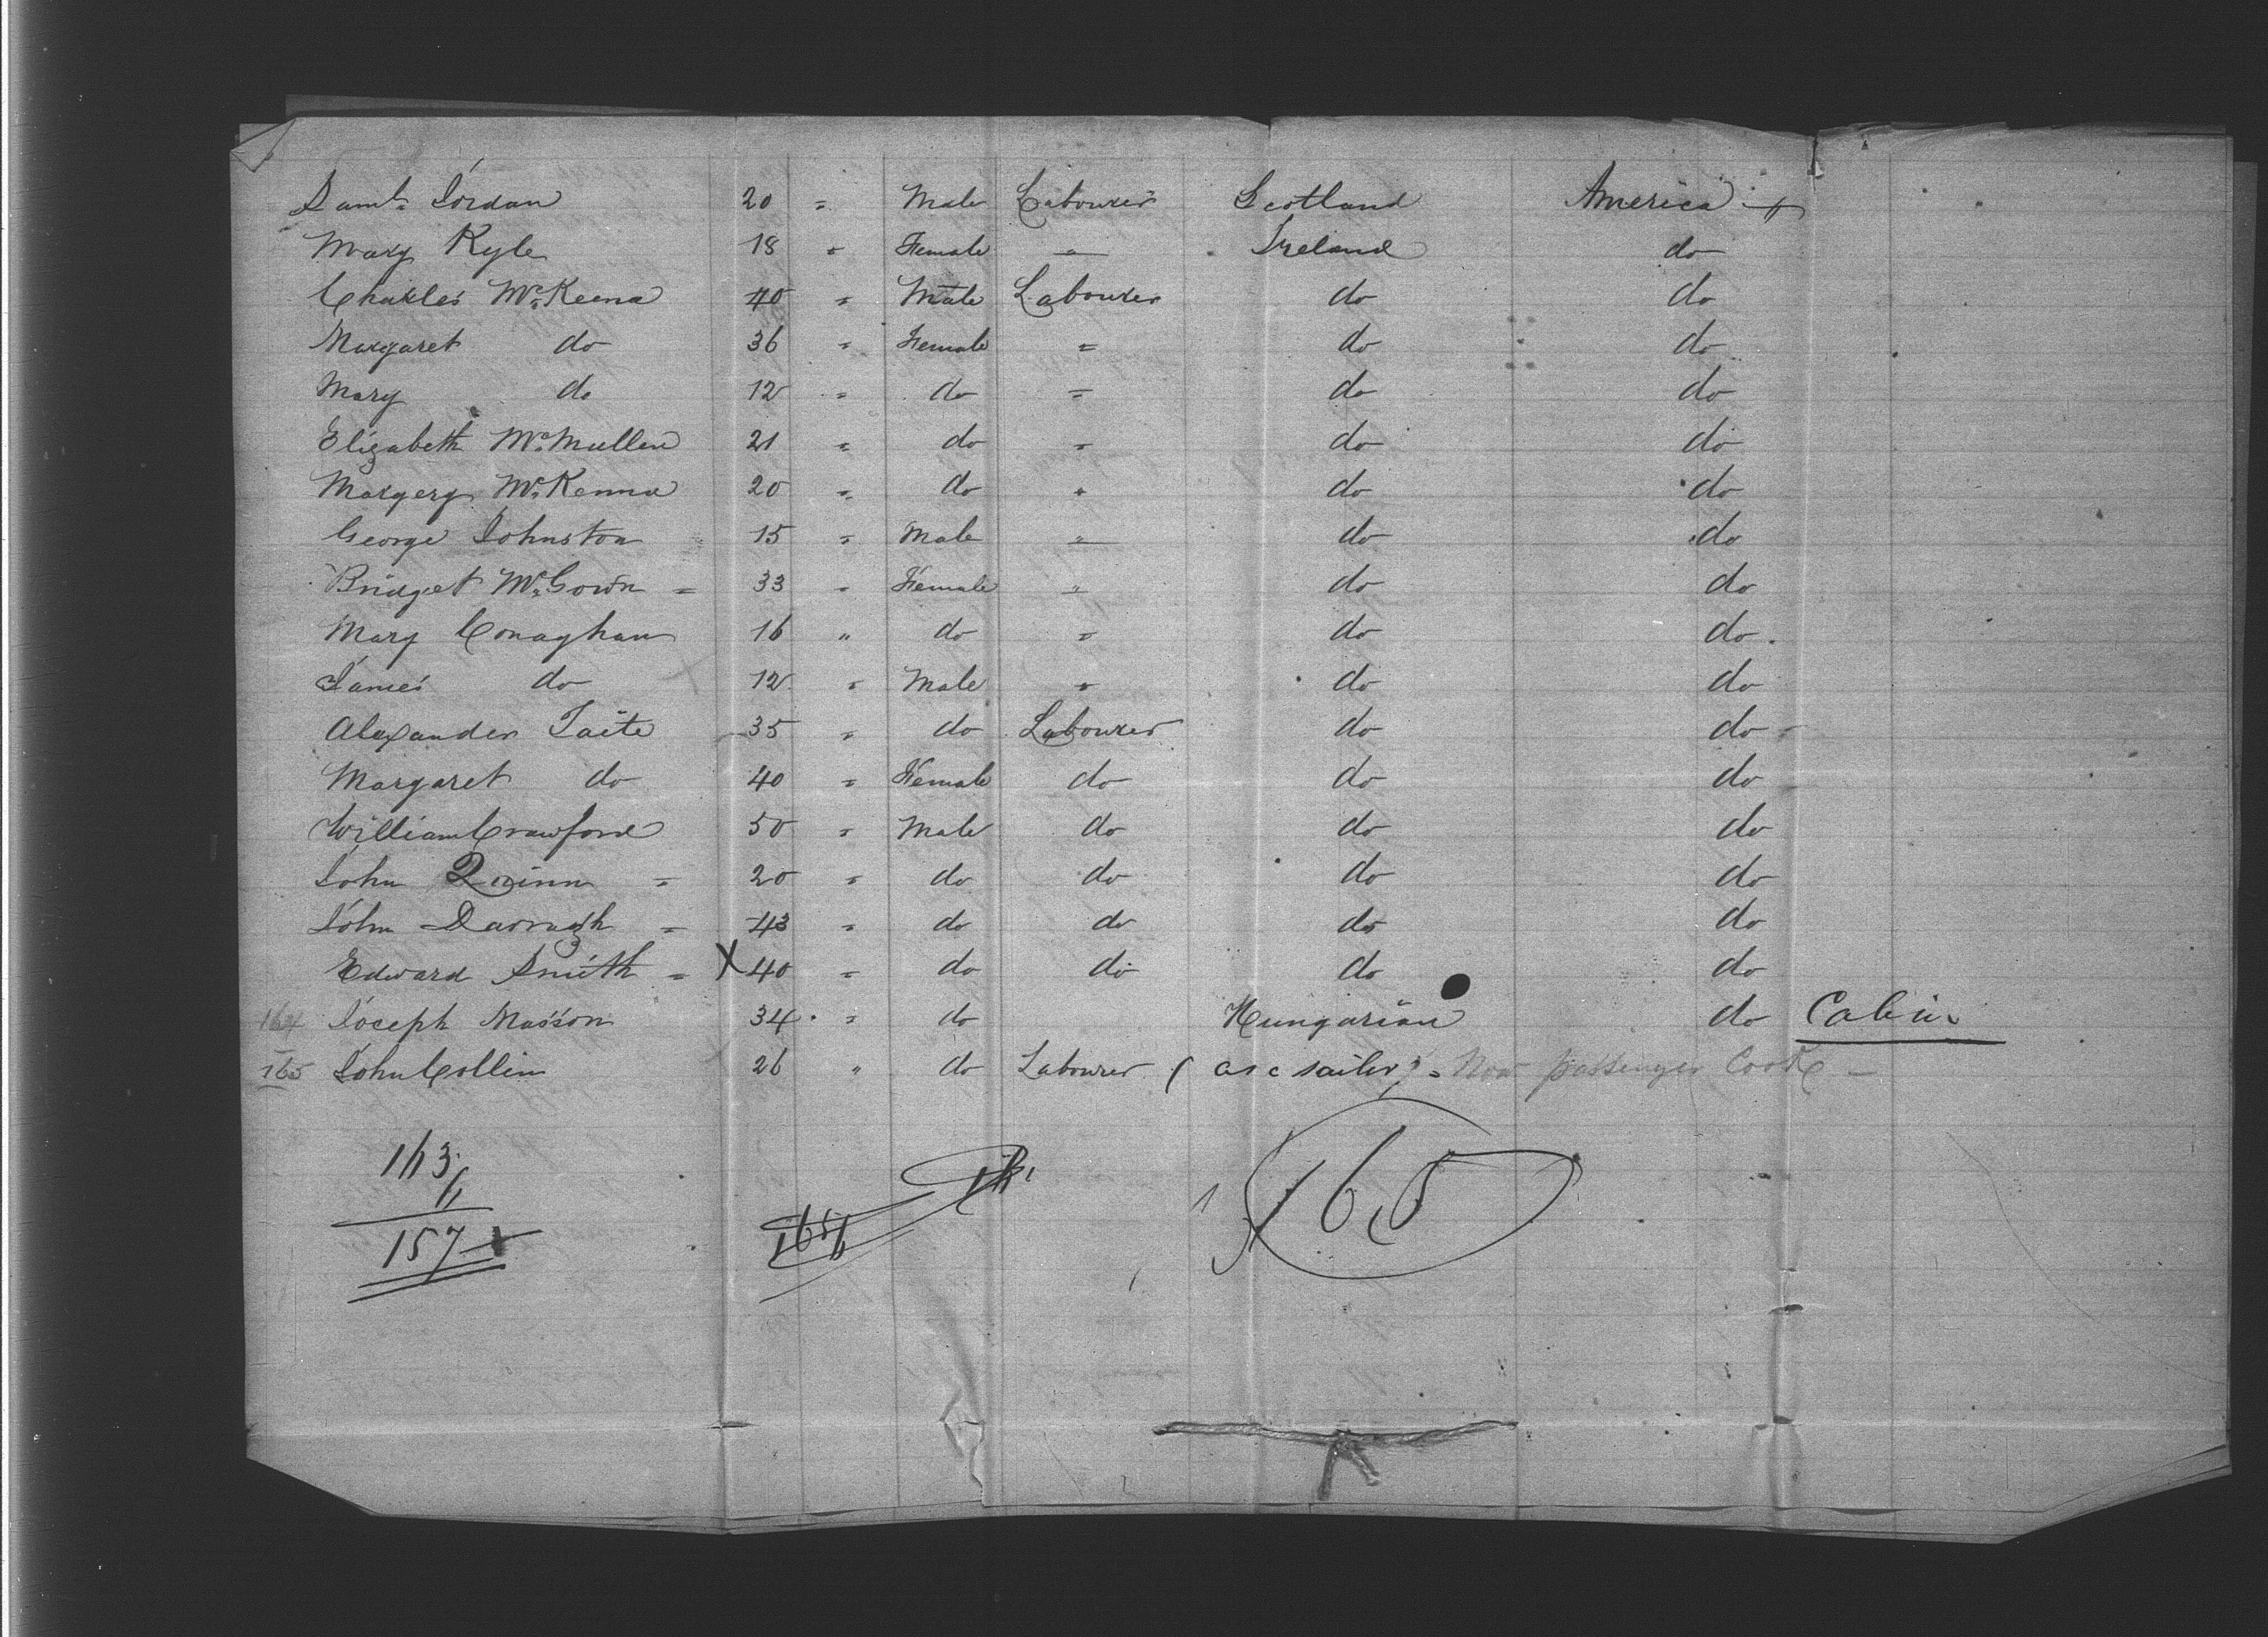 Saml. Jordan 20 " Male Labourer Scotland America
Mary Kyle 18 " Female " Ireland do
Charles McKeena 40 " Male Labourer do do
Margaret do 36 " Female " do do
Mary do 12 " do " do do
Elizabeth McMullen 21 " do " do do
Margery McKenna 20 " do " do do
George Johnston 15 " Male " do do
Bridget McGown = 33 " Female " do do
Mary Conaghan 16 " do " do do
James do 12 " Male " do do
Alexander Taite 35 " do Labourer do do
Margaret do 40 " Female do do do
William Crawford 50 " Male do do do
John Quinn = 20 " do do do do
John Darragh = 43 " do do do do
Edward Smith = X 40 " do do do do
164 Joseph Masson 34 " do Hungarian do Cabin
165 John Collin 26 " do Labourer ( as a sailor ) = Now passenger Cook
163 165
6
157